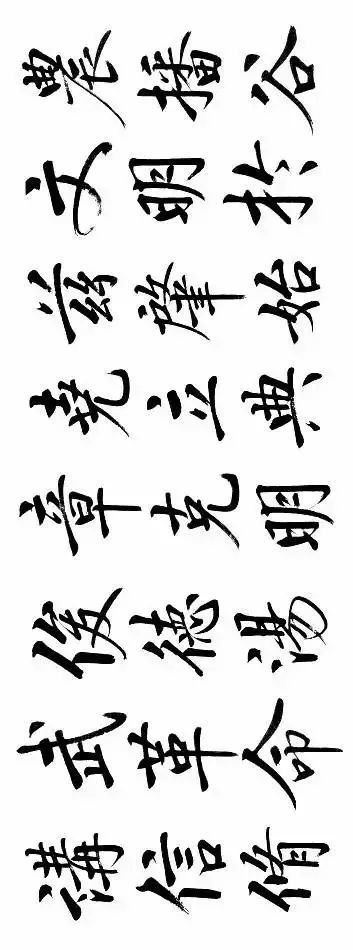 農播谷
文明於
茲肇始
堯立典
章克明
俊德湯
武革命
講信脩